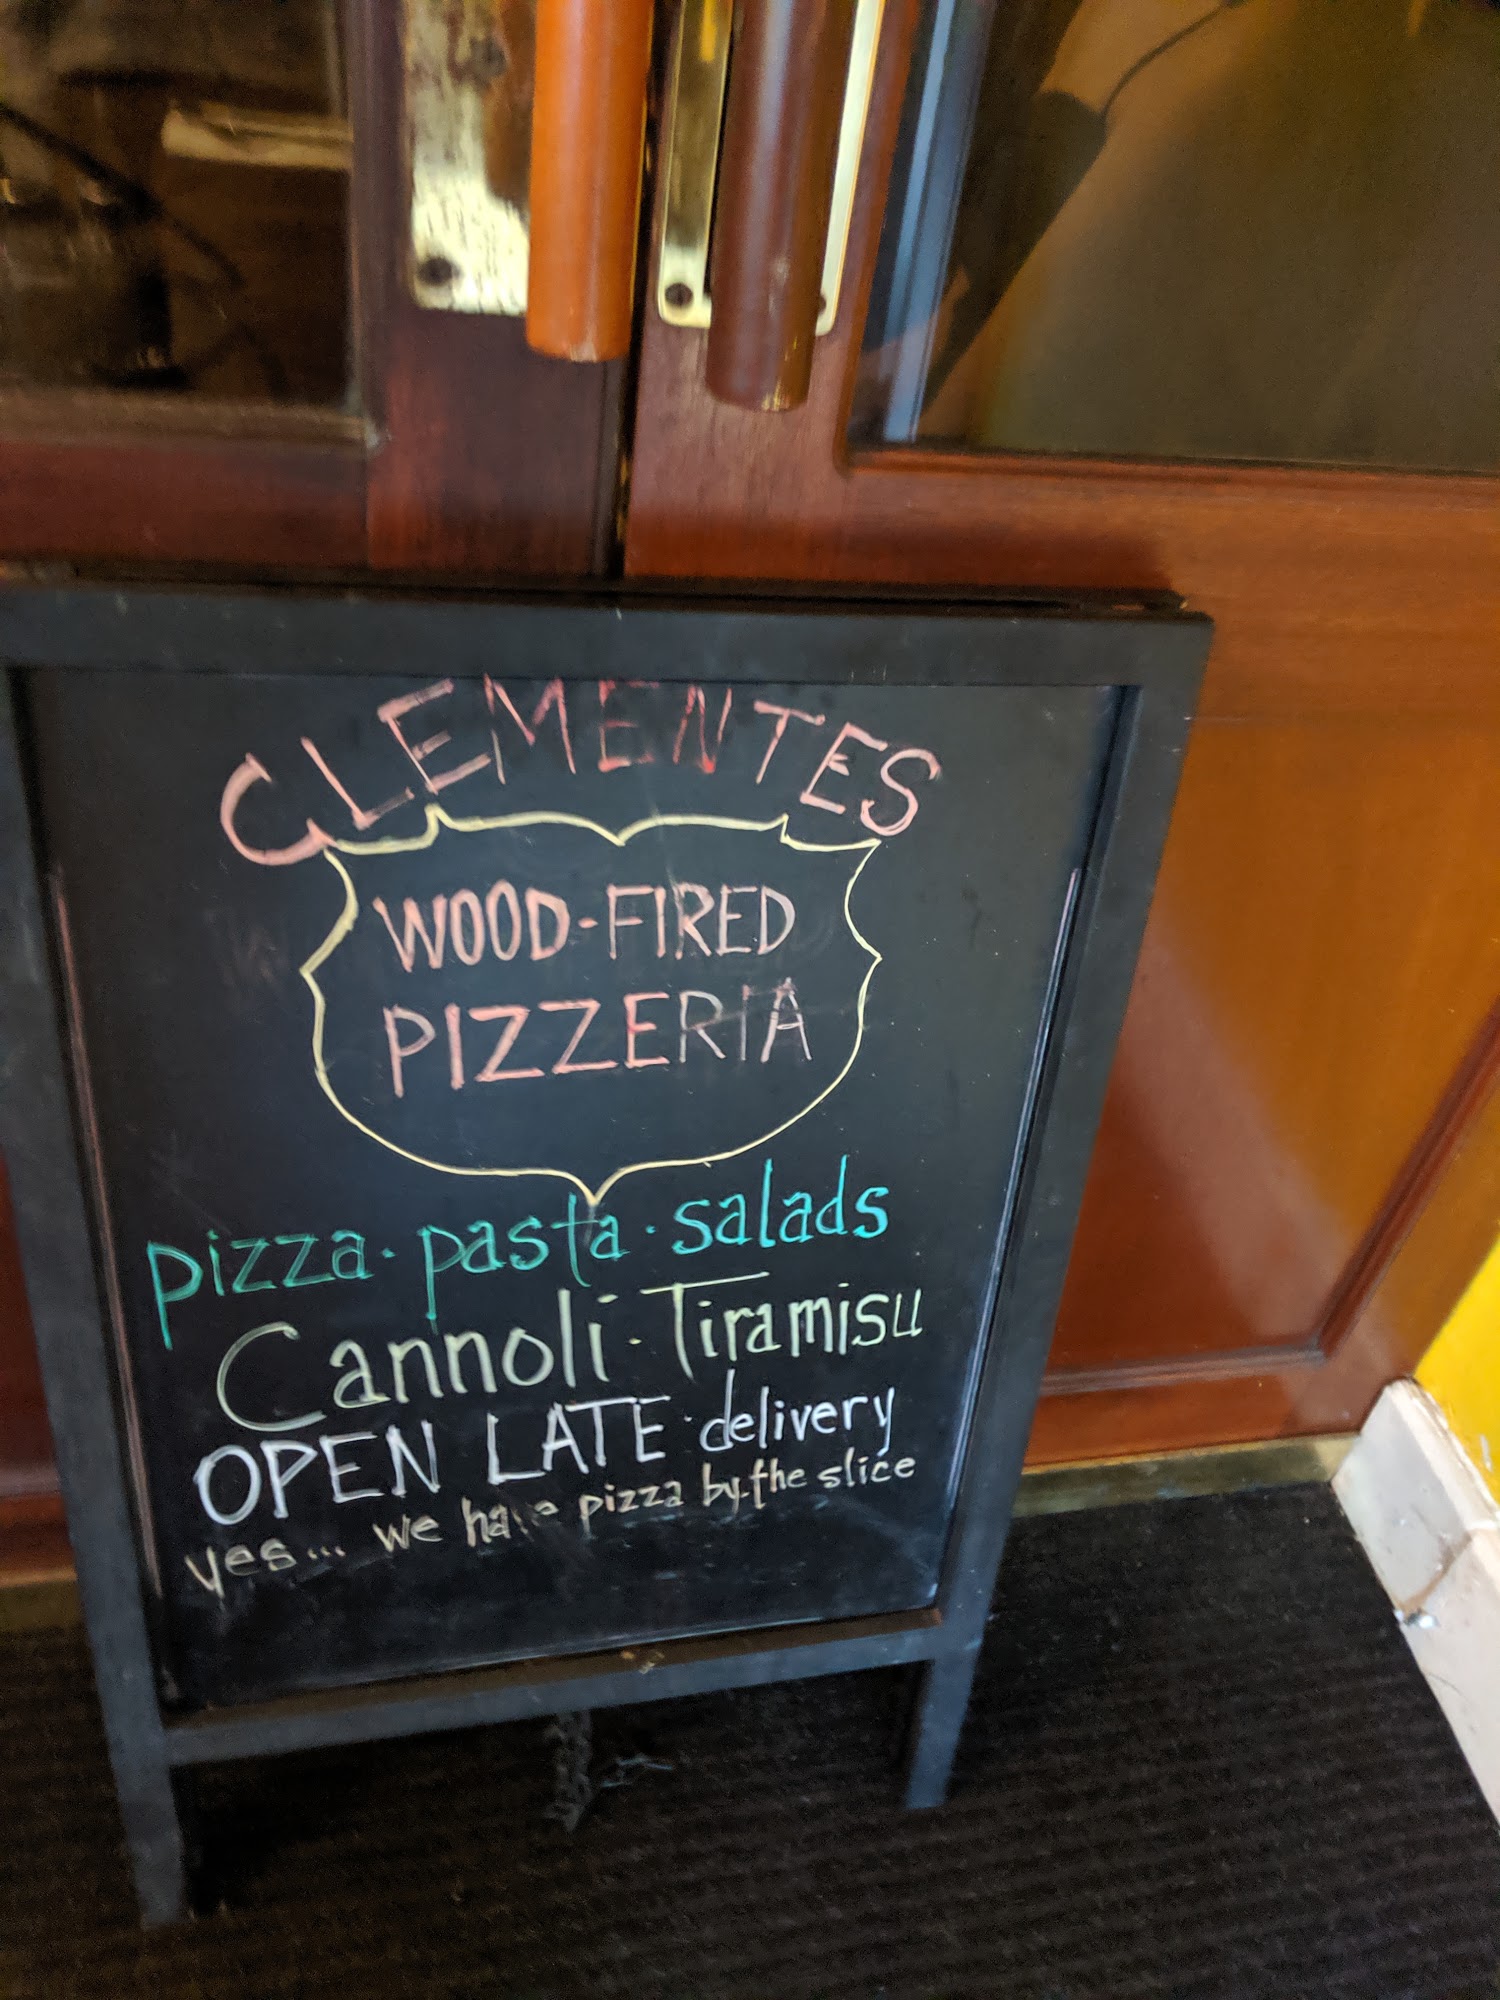 CLEMENTES
WOOD-FIRED
PIZZERIA
pizza · pasta · salads
Cannoli · Tiramisu
OPEN LATE · delivery
yes... we have pizza by the slice